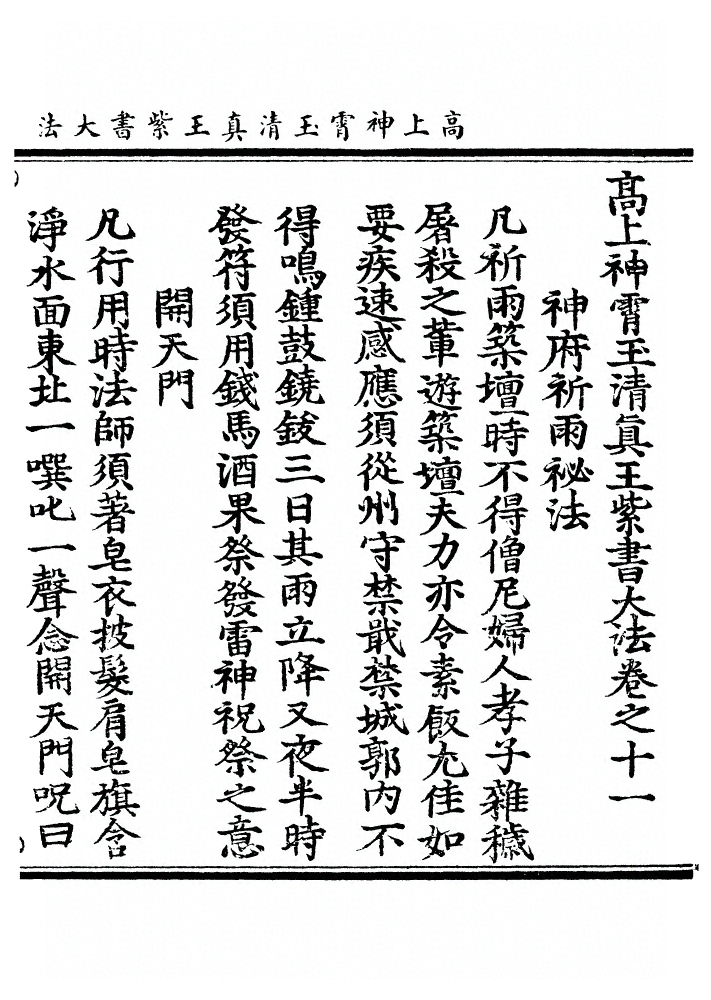 高上神霄玉清真王紫書大法
髙上神霄玉清眞王紫書大法卷之十一
神府祈雨祕法
凡祈雨築壇時不得僧尼婦人孝子雜穢
屠殺之輩遊築壇夫力亦令素飯尤佳如
要疾速感應須從州守禁戢禁城郭內不
得鳴鍾鼓鐃鈸三日其雨立降又夜半時
發符須用錢馬酒果祭發雷神祝祭之意
開天門
凡行用時法師須著皂衣披髮肩皂旗含
淨水面東北一噀叱一聲念開天門呪曰